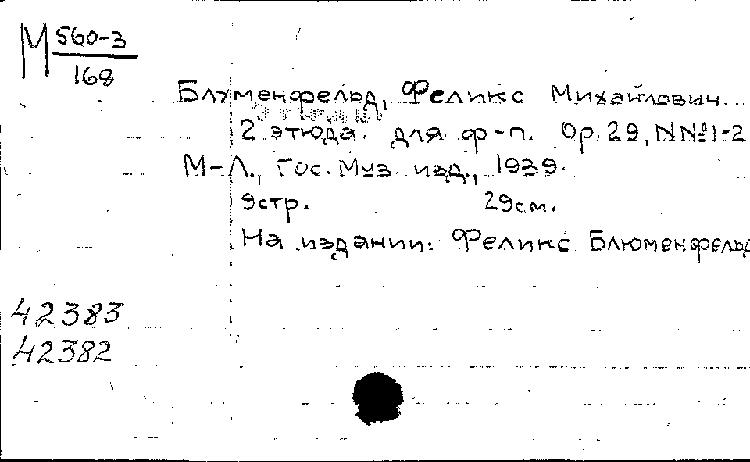 М 560-3
168
Блуменфельд, Феликс Михайлович.
2 этюда. для ф-п. Ор. 29, NNº 1-2
М-Л., Гос. Муз. изд., 1939.
9 стр. 29 см.
На издании: Феликс Блюменфельд
42383
42382